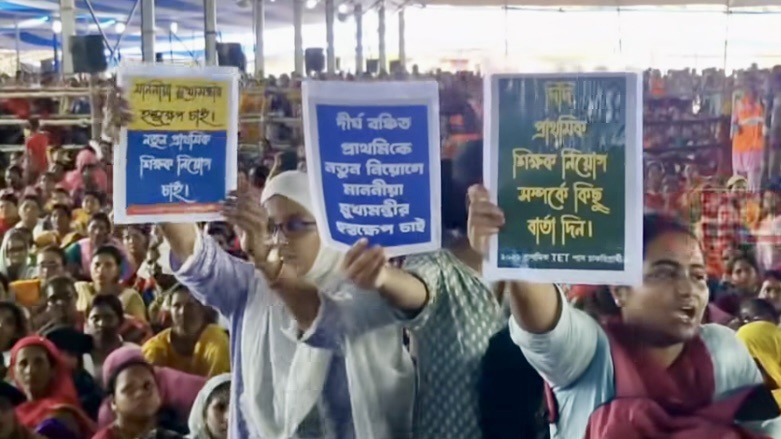 মাননীয়া মুখ্যমন্ত্রীর
হস্তক্ষেপ চাই।
নতুন প্রাথমিক
শিক্ষক নিয়োগ
চাই।
দীর্ঘ বঞ্চিত
প্রাথমিকে
নতুন নিয়োগে
মাননীয়া
মুখ্যমন্ত্রীর
হস্তক্ষেপ চাই
দিদি
প্রাথমিক
শিক্ষক নিয়োগ
সম্পর্কে কিছু
বার্তা দিন।
২০২২ প্রাথমিক TET পাশ চাকরিপ্রার্থী